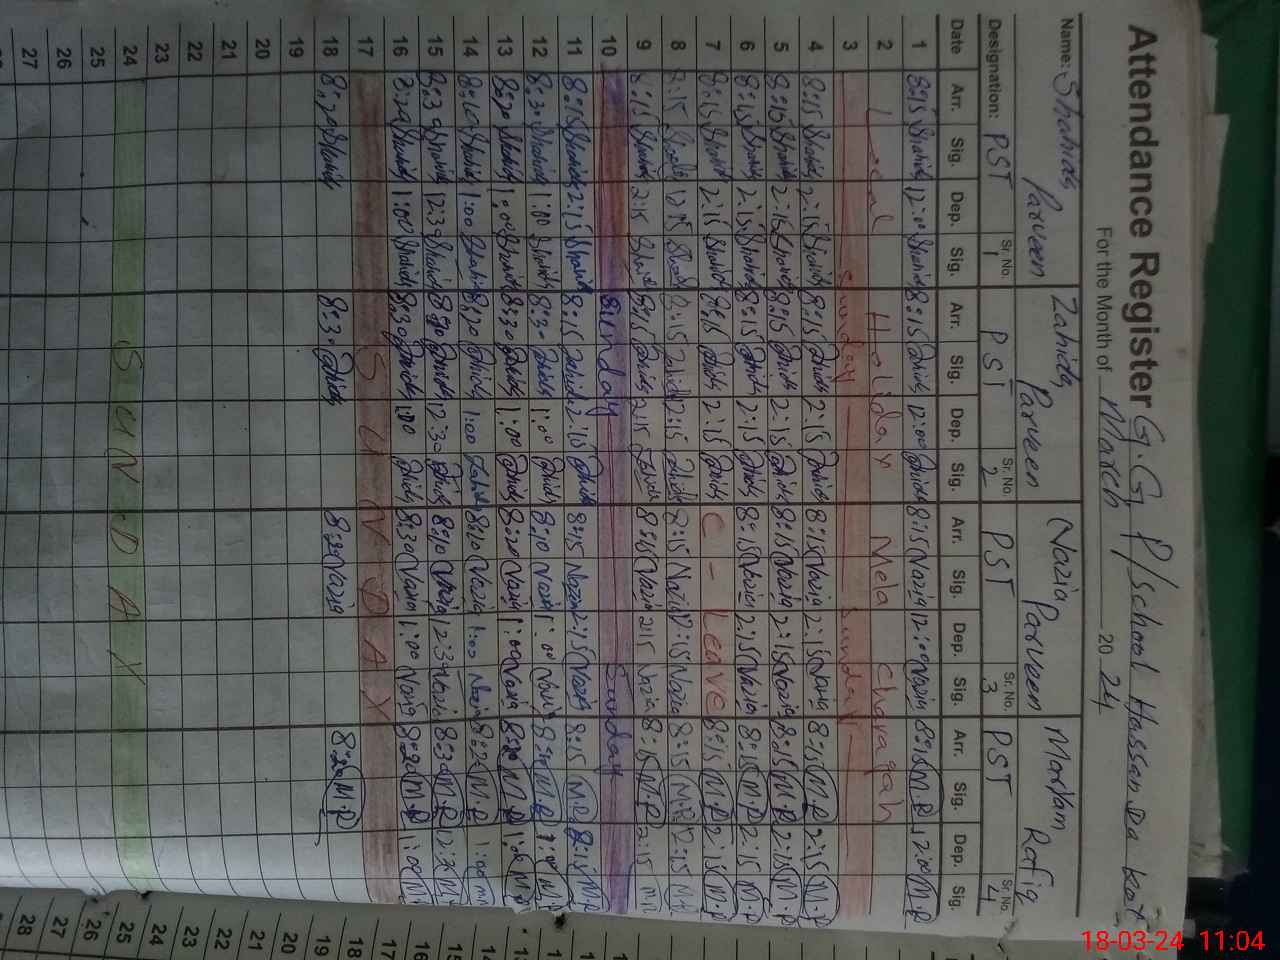 Attendance Register G.G. P/School Hassan Da Kot
For the Month of March 2024
Name: Shahida Parveen Zahida Parveen Nazia Parveen Maryam Rafiq
Designation: PST Sr. No. 1 PST Sr. No. 2 PST Sr. No. 3 PST Sr. No. 4
Date Arr. Sig. Dep. Sig. Arr. Sig. Dep. Sig. Arr. Sig. Dep. Sig. Arr. Sig. Dep. Sig.
1 8:15 Shahida 12:00 Shahida 8:15 Zahida 12:00 Zahida 8:15 Nazia 12:00 Nazia 8:15 M.R 12:00 M.R
2 Local Holiday Mela Charagah
3 Sunday Sunday
4 8:15 Shahida 2:15 Shahida 8:15 Zahida 2:15 Zahida 8:15 Nazia 2:15 Nazia 8:15 M.R 2:15 M.R
5 8:15 Shahida 2:15 Shahida 8:15 Zahida 2:15 Zahida 8:15 Nazia 2:15 Nazia 8:15 M.R 2:15 M.R
6 8:15 Shahida 2:15 Shahida 8:15 Zahida 2:15 Zahida 8:15 Nazia 2:15 Nazia 8:15 M.R 2:15 M.R
7 8:15 Shahida 2:15 Shahida 8:15 Zahida 2:15 Zahida C - Leave 8:15 M.R 2:15 M.R
8 8:15 12:15 8:15 Zahida 12:15 Zahida 8:15 Nazia 12:15 Nazia 8:15 M.R 12:15 M.R
9 8:15 Shahida 2:15 Shahida 8:15 Zahida 2:15 Zahida 8:15 Nazia 2:15 Nazia 8:15 M.R 2:15 M.R
10 Sunday Sunday
11 8:15 Shahida 2:15 Shahida 8:15 Zahida 2:15 Zahida 8:15 Nazia 2:15 Nazia 8:15 M.R 2:15 M.R
12 8:30 Shahida 1:00 Shahida 8:30 Zahida 1:00 Zahida 8:10 Nazia 1:00 Nazia M.R 1:00 M.R
13 8:20 Shahida 1:00 Shahida 8:30 Zahida 1:00 Zahida 8:20 Nazia 1:00 Nazia 8:20 M.R M.R
14 8:10 Shahida 1:00 Shahida 8:10 Zahida 1:00 Zahida 8:10 Nazia 1:00 Nazia 8:20 M.R 1:00 M.R
15 8:30 Shahida 12:30 Shahida Zahida 12:30 Zahida 8:10 Nazia 12:30 Nazia 8:30 M.R 12:30 M.R
16 8:20 Shahida 1:00 Shahida 8:30 Zahida 1:00 Zahida 8:30 Nazia 1:00 Nazia 8:20 M.R 1:00 M.R
17 SUNDAY
18 8:20 Shahida 8:30 Zahida 8:20 Nazia 8:20 M.R
19
20
21
22
23
24 SUNDAY
25
26
27
28
27
26
25
24
23
22
21
20
19
18
17
16
15
14
18-03-24 11:04